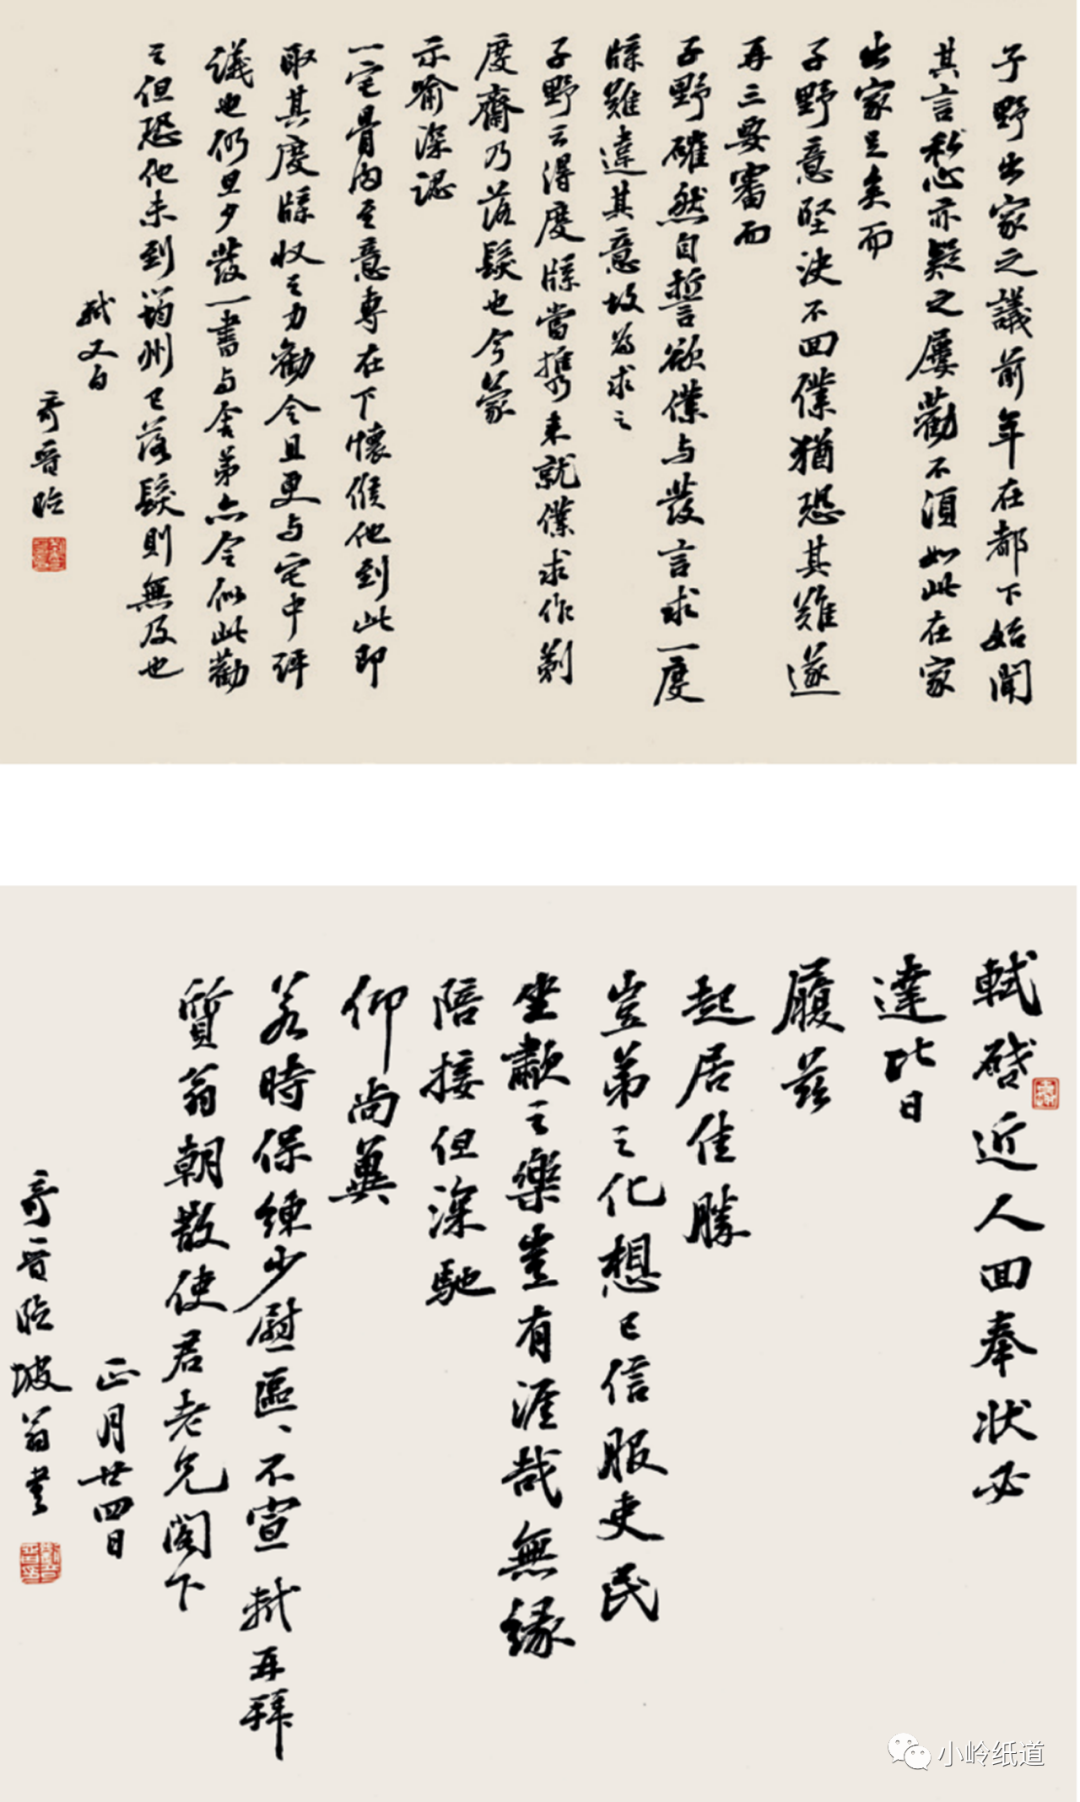 子野出家之議前年在都下始聞
其言私心亦疑之屢勸不須如此在家
出家足矣而
子野意堅決不回僕猶恐其難遂
再三要審而
子野確然自誓欲僕与發言求一度
牒難違其意故為求之
子野云得度牒當携来就僕求作剃
度齋乃落髮也今蒙
示喻深認
一宅骨肉至意專在下懷候他到此即
取其度牒收之力勸令且更与宅中評
議也仍且夕發一書与舍弟亦令似此勸
之但恐他未到筠州已落髮則無及也
軾又白
奇晋臨
軾啓近人回奉状必
達比日
履兹
起居佳勝
豈弟之化想已信服吏民
坐歗之樂豈有涯哉無緣
陪接但深馳
仰尚冀
若時保練少慰區、不宣 軾再拜
質翁朝散使君老兄閣下
正月廿四日
奇晋臨坡翁書
小岭纸道